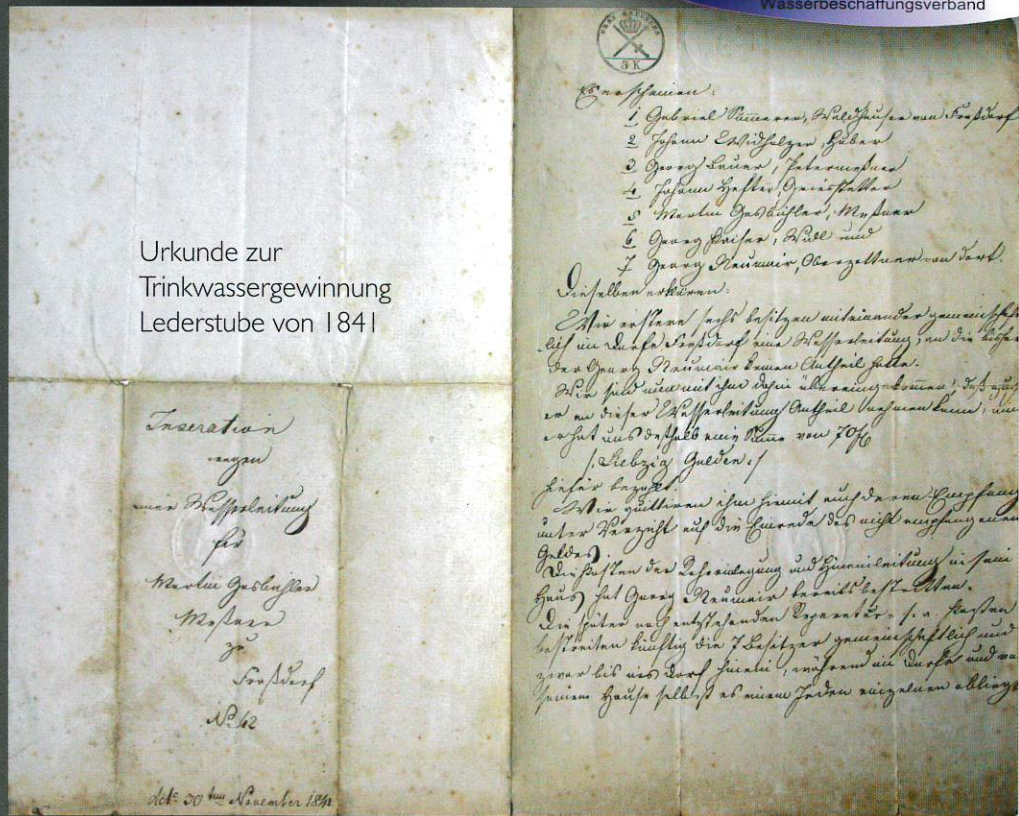 Wasserbeschaffungsverband
Urkunde zur
Trinkwassergewinnung
Lederstube von 1841
Inseration
wegen
einer Wasserleitung
für
Martin Gesbühler
Meßner
zu
No 42
dcto 30ten November 1841
5 K
Es erschienen:
1 Gabriel von
2 Johann Widholzer, Huber
3 Georg Bauer, Petermeßner
4 Johann Hefter, Griesstetter
5 Martin Gesbühler, Meßner
6 Georg Kaiser, und
7 Georg Neumair, Oberzettner von dort.
Dieselben erklären:
Wir erstere sechs besitzen miteinander gemeinschaft
lich im Dorfe eine Wasserleitung, an die bisher
der Georg Neumair keinen Antheil hatte.
Wir sind nun mit ihm dahin übereingekommen, daß auch
er an dieser Wasserleitung Antheil nehmen könne, und
er hat uns deßhalb eine Summe von 70 f
/: Siebzig Gulden :/
hiefür bezahlt.
Wir quittiren ihm hiemit auch deren Empfang
unter Verzicht auf die Einrede des nicht empfangenen
Geldes.
Die Kosten der und Hineinleitung in sein
Haus hat Georg Neumair bereits bestritten.
Die später noch entstehenden Reparatur- Kosten
bestreiten künftig die 7 Besitzer gemeinschaftlich und
zwar bis ins Dorf hinein, während im Dorfe und
seinem Hause selbst es einem Jeden einzelnen obliegt